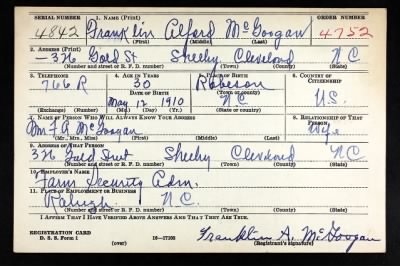 SERIAL NUMBER 1. NAME (Print) ORDER NUMBER
4842 Franklin Alford McGoogan 4752
(First) (Middle) (Last)
2. ADDRESS (Print)
— 326 Gold St Shelby Cleveland N C
(Number and street or R. F. D. number) (Town) (County) (State)
3. TELEPHONE 4. AGE IN YEARS 5. PLACE OF BIRTH 6. COUNTRY OF CITIZENSHIP
766 R 30 Robeson
DATE OF BIRTH (Town or county)
May 12 1910 N C U.S.
(Exchange) (Number) (Mo.) (Day) (Yr.) (State or country)
7. NAME OF PERSON WHO WILL ALWAYS KNOW YOUR ADDRESS 8. RELATIONSHIP OF THAT PERSON
Mrs F A McGoogan Wife
(Mr., Mrs., Miss) (First) (Middle) (Last)
9. ADDRESS OF THAT PERSON
326 Gold Street Shelby Cleveland N C
(Number and street or R. F. D. number) (Town) (County) (State)
10. EMPLOYER'S NAME
Farm Security Adm.
11. PLACE OF EMPLOYMENT OR BUSINESS
Raleigh N. C.
(Number and street or R. F. D. number) (Town) (County) (State)
I AFFIRM THAT I HAVE VERIFIED ABOVE ANSWERS AND THAT THEY ARE TRUE.
REGISTRATION CARD
D. S. S. Form 1 (over) 16—17105
Franklin A. McGoogan
(Registrant's signature)